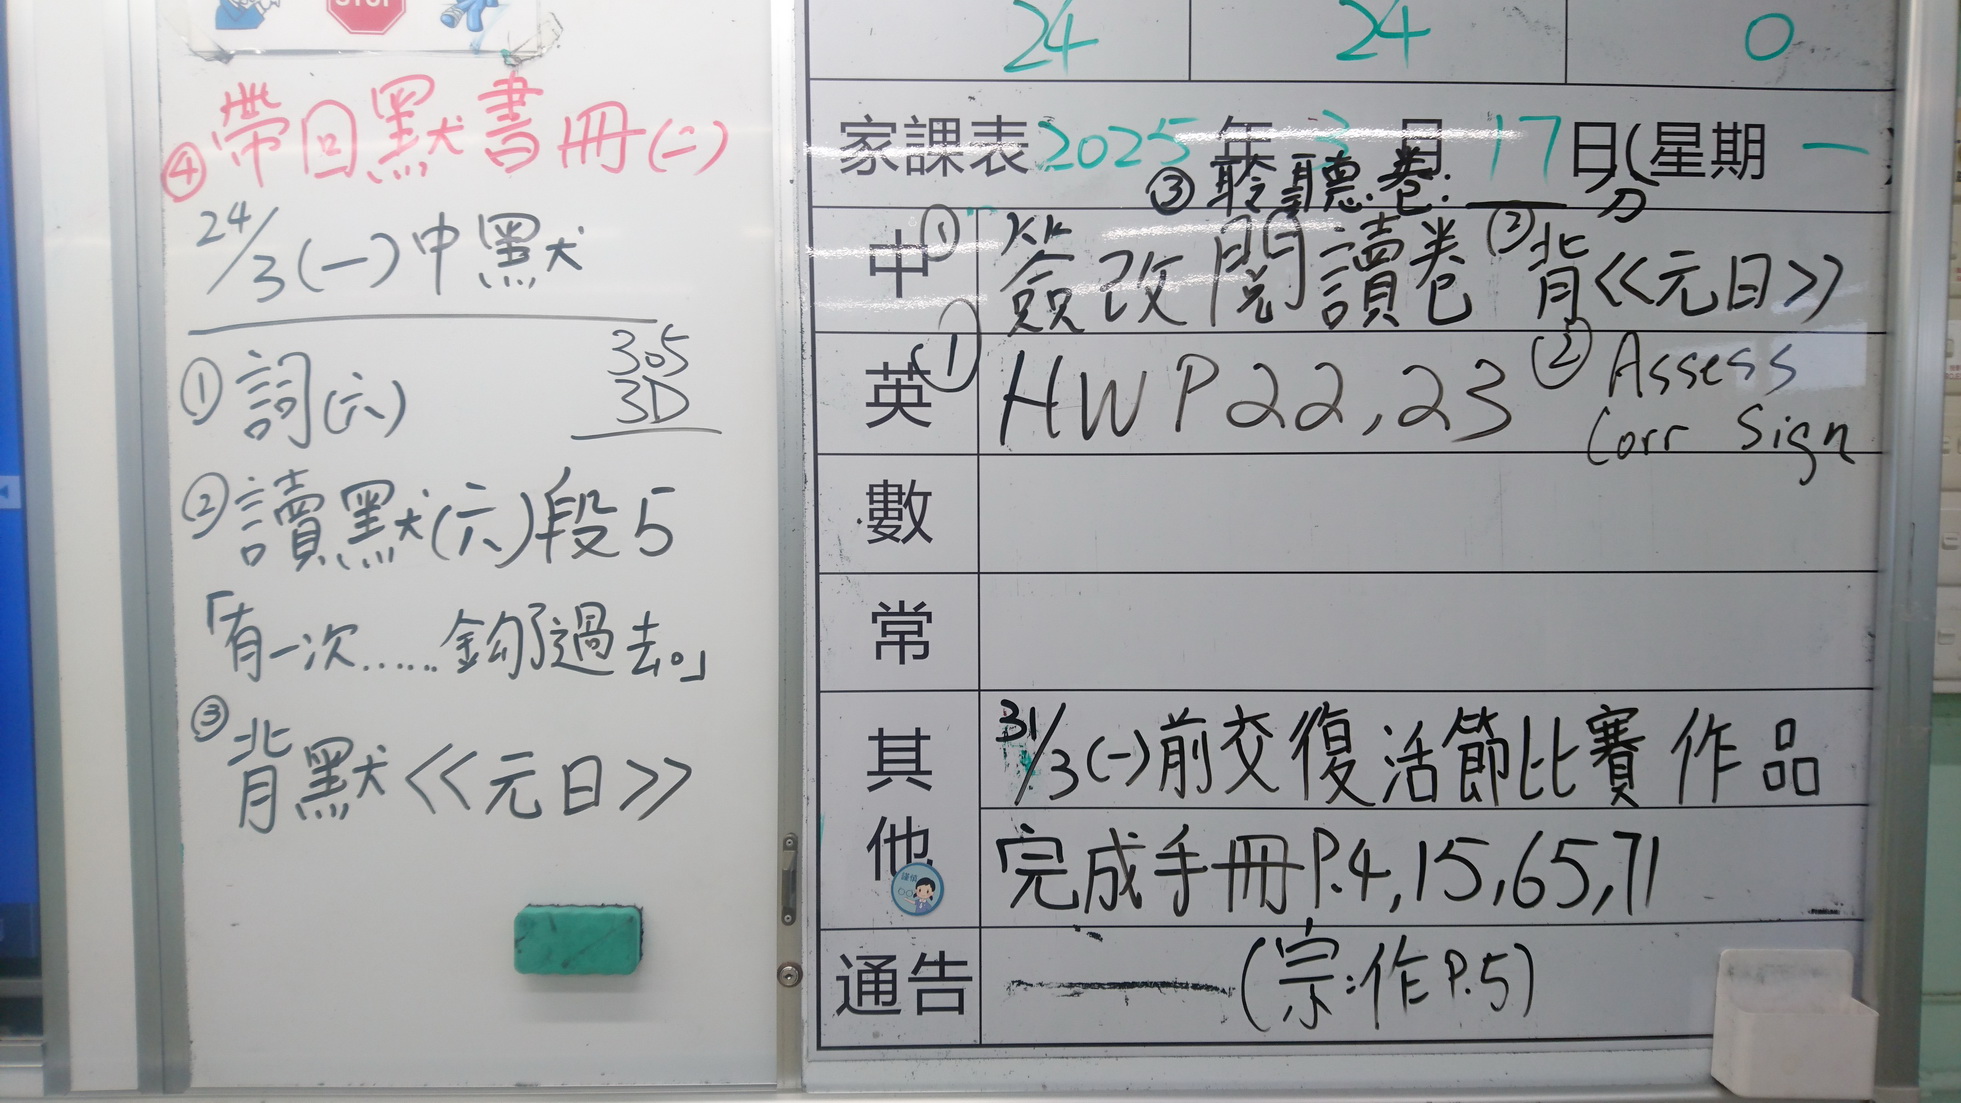 STOP
④帶回默書冊(二)
24/3(一)中默
305
3D
①詞(六)
②讀默(六)段5
「有一次……鈎了過去。」
③背默<<元日>>
24 24 0
家課表2025年3月17日(星期一
③聆聽卷:___分
中 ①簽改閱讀卷 ②背<<元日>>
英 ①HW P22,23 ②Assess
Corr Sign
數
常
其他 31/3(一)前交復活節比賽作品
完成手冊P.4,15,65,71
通告 ——(宗:作P.5)